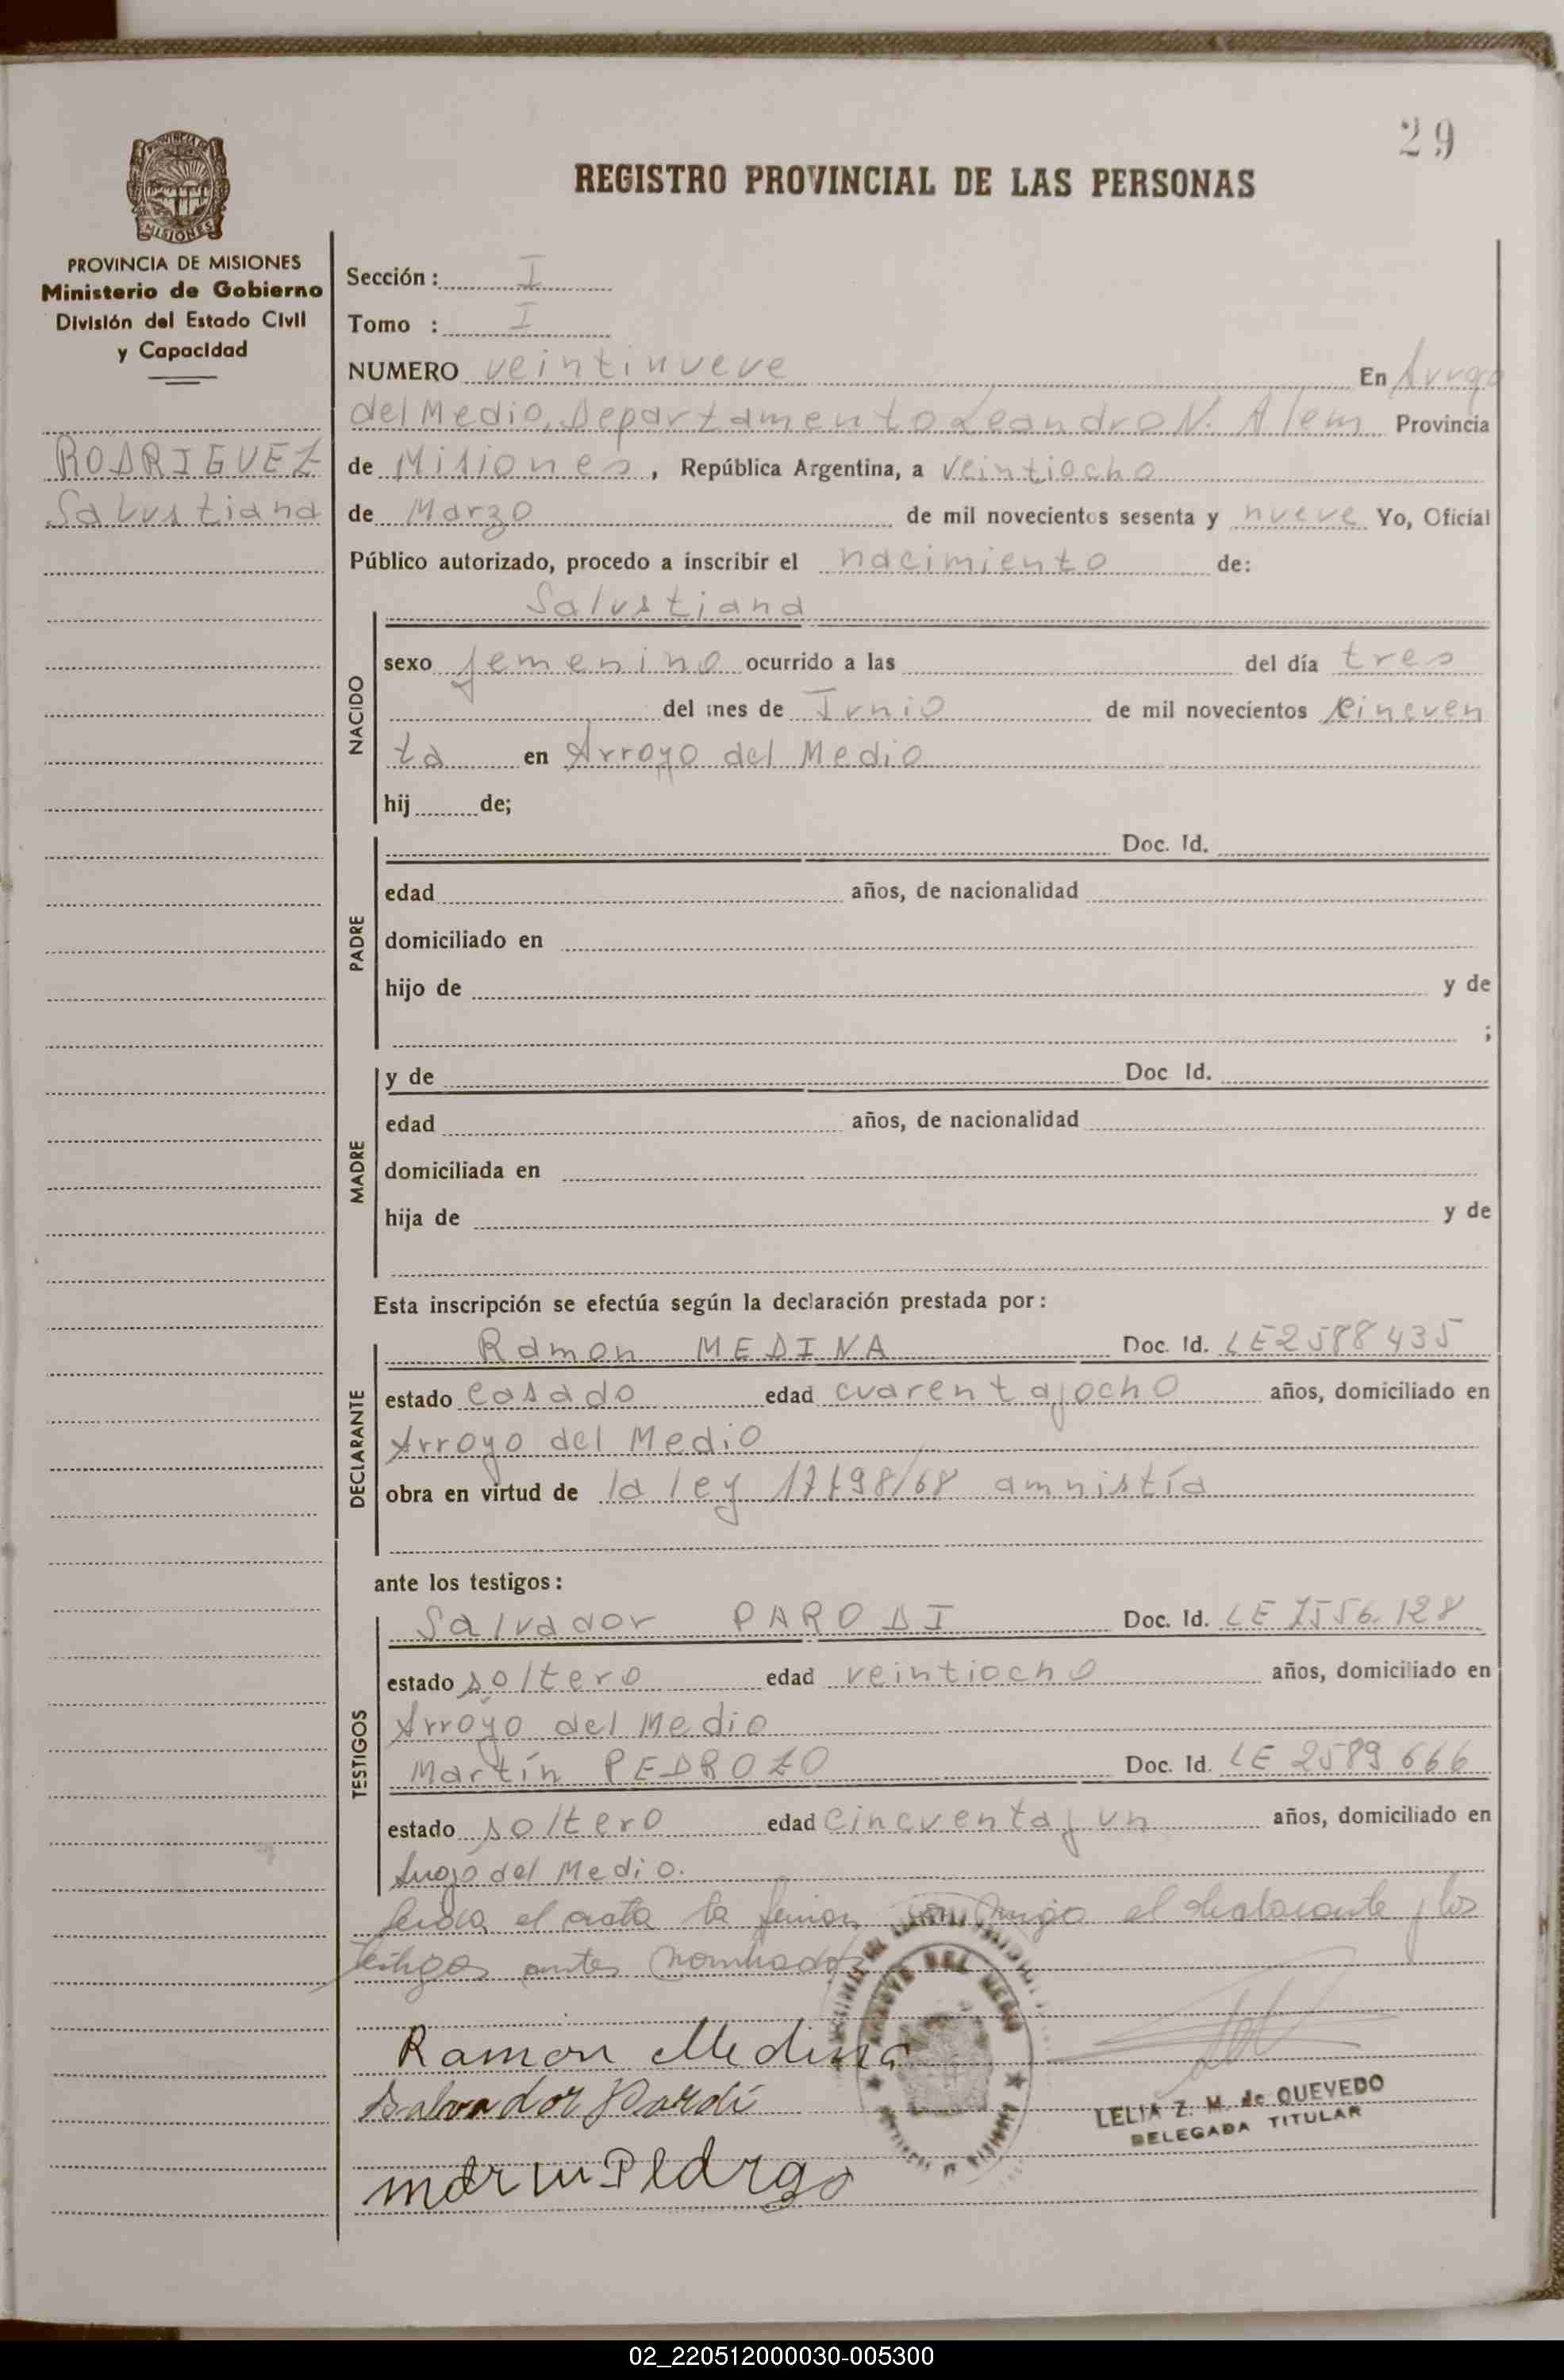 29
REGISTRO PROVINCIAL DE LAS PERSONAS
PROVINCIA DE
MISIONES
PROVINCIA DE MISIONES
Ministerio de Gobierno
División del Estado Civil
y Capacidad
RODRIGUEZ
Salustiana
Sección: I
Tomo : I
NUMERO veintinueve En Arroyo
del Medio, Departamento Leandro N. Alem Provincia
de Misiones, República Argentina, a veintiocho
de Marzo de mil novecientos sesenta y nueve Yo, Oficial
Público autorizado, procedo a inscribir el nacimiento de:
NACIDO
Salustiana
sexo femenino ocurrido a las del día tres
del mes de Junio de mil novecientos cincuen
ta en Arroyo del Medio
hij de;
PADRE
Doc. Id.
edad años, de nacionalidad
domiciliado en
hijo de y de
;
MADRE
y de Doc Id.
edad años, de nacionalidad
domiciliada en
hija de y de
Esta inscripción se efectúa según la declaración prestada por:
DECLARANTE
Ramon MEDINA Doc. Id. LE2588435
estado casado edad cuarenta y ocho años, domiciliado en
Arroyo del Medio
obra en virtud de la ley 17198/68 amnistía
ante los testigos:
TESTIGOS
Salvador PARODI Doc. Id. LE 7556.128
estado soltero edad veintiocho años, domiciliado en
Arroyo del Medio
Martín PEDROZO Doc. Id. LE 2589666
estado soltero edad cincuenta y un años, domiciliado en
Arroyo del Medio.
el acta la firman conmigo el declarante y los
testigos antes nombrados
Ramon Medina
Salvador Pardi
LELIA Z. M. de QUEVEDO
DELEGADA TITULAR
02_220512000030-005300